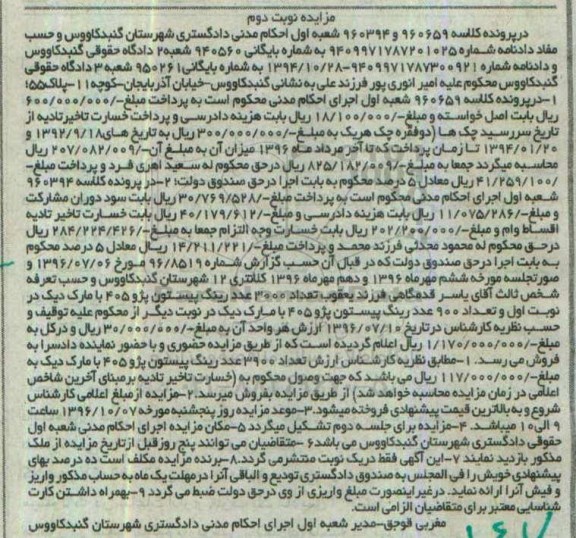 مزایده نوبت دوم
درپرونده کلاسه ۹۶۰۶۵۹ و ۹۶۰۳۹۴ شعبه اول احکام مدنی دادگستری شهرستان گنبدکاووس و حسب
مفاد دادنامه شماره ۹۴۰۹۹۷۱۷۸۷۲۰۱۰۲۵ به شماره بایگانی ۹۴۰۵۶۰ شعبه۲ دادگاه حقوقی گنبدکاووس
و دادنامه شماره ۹۴۰۹۹۷۱۷۸۷۳۰۰۹۲۱-۱۳۹۴/۱۰/۲۸ به شماره بایگانی۹۵۰۲۶۱ شعبه ۳ دادگاه حقوقی
گنبدکاووس محکوم علیه امیر انوری پور فرزند علی به نشانی گنبدکاووس-خیابان آذربایجان-کوچه۱۱-پلاک۱۵۵؛
۱-درپرونده کلاسه ۹۶۰۶۵۹ شعبه اول اجرای احکام مدنی محکوم است به پرداخت مبلغ-/۶۰۰/۰۰۰/۰۰۰
ریال بابت اصل خواسته و مبلغ-/۱۸/۱۰۰/۰۰۰ ریال بابت هزینه دادرسی و پرداخت خسارت تاخیرتادیه از
تاریخ سررسید چک ها (دوفقره چک هریک به مبلغ-/۳۰۰/۰۰۰/۰۰۰ ریال به تاریخ های۱۳۹۲/۹/۱۸ و
۱۳۹۴/۰۱/۲۰ تا زمان پرداخت که تا آخر مرداد ماه ۱۳۹۶ میزان آن به مبلغ آن-/۲۰۷/۰۸۲/۰۰۹ ریال
محاسبه میگردد جمعا به مبلغ-/۸۲۵/۱۸۲/۰۰۹ ریال درحق محکوم له سعید اهری فرد و پرداخت مبلغ-
/۴۱/۲۵۹/۱۰۰ ریال معادل ۵ درصد محکوم به بابت اجرا درحق صندوق دولت؛ ۲-در پرونده کلاسه ۹۶۰۳۹۴
شعبه اول اجرای احکام مدنی محکوم است به پرداخت مبلغ-/۳۰/۷۶۹/۵۲۸ ریال بابت سود دوران مشارکت
و مبلغ-/۱۱/۰۷۵/۲۸۶ ریال بابت هزینه دادرسی و مبلغ-/۴۰/۱۷۹/۶۱۲ ریال بابت خسارت تاخیر تادیه
اقساط وام و مبلغ-/۲۰۲/۲۰۰/۰۰۰ ریال بابت خسارت وجه التزام جمعا به مبلغ-/۲۸۴/۲۲۴/۴۲۶ ریال
درحق محکوم له محمود محدثی فرزند محمد و پرداخت مبلغ-/۱۴/۲۱۱/۲۲۱ ریال معادل ۵ درصد محکوم
به بابت اجرا درحق صندوق دولت که در قبال آن حسب گزارش شماره ۹۶/۸۵۱۹ مورخ ۱۳۹۶/۰۷/۰۶ و
صورتجلسه مورخه ششم مهرماه ۱۳۹۶ و دهم مهرماه ۱۳۹۶ کلانتری ۱۲ شهرستان گنبدکاووس و حسب تعرفه
شخص ثالث آقای یاسر قدمگاهی فرزند یعقوب تعداد ۳۰۰۰ عدد رینگ پیستون پژو ۴۰۵ با مارک دیک در
نوبت اول و تعداد ۹۰۰ عدد رینگ پیستون پژو ۴۰۵ با مارک دیک در نوبت دیگر از محکوم علیه توقیف و
حسب نظریه کارشناس درتاریخ ۱۳۹۶/۰۷/۱۰ ارزش هر واحد آن به مبلغ-/۳۰/۰۰۰/۰۰۰ ریال و درکل به
مبلغ-/۱/۱۷۰/۰۰۰/۰۰۰ ریال اعلام گردیده است که از طریق مزایده حضوری و با حضور نماینده دادسرا به
فروش می رسد. ۱-مطابق نظریه کارشناس ارزش تعداد ۳۹۰۰ عدد رینگ پیستون پژو ۴۰۵ با مارک دیک به
مبلغ-/۱۱۷/۰۰۰/۰۰۰ ریال می باشد که جهت وصول محکوم به (خسارت تاخیر تادیه برمبنای آخرین شاخص
اعلامی در زمان مزایده محاسبه خواهد شد) از طریق مزایده بفروش میرسد.۲-مزایده از مبلغ اعلامی کارشناس
شروع و به بالاترین قیمت پیشنهادی فروخته میشود.۳-موعد مزایده روز پنجشنبه مورخه ۱۳۹۶/۱۰/۰۷ ساعت
۹ الی۱۰ میباشد. ۴-مزایده برای جلسه دوم تشکیل میگردد ۵-مکان مزایده اجرای احکام مدنی شعبه اول
حقوقی دادگستری شهرستان گنبدکاووس می باشد۶ -متقاضیان می توانند پنج روز قبل ازتاریخ مزایده از ملک
مذکور بازدید نمایند ۷-این آگهی فقط دریک نوبت منتشرمی گردد.۸-برنده مزایده مکلف است ده درصد بهای
پیشنهادی خویش را فی المجلس به صندوق دادگستری تودیع و الباقی آنرا درمهلت یک ماه به حساب مذکور واریز
و فیش آنرا ارائه نماید. درغیراینصورت مبلغ واریزی از وی درحق دولت ضبط می گردد ۹-بهمراه داشتن کارت
شناسایی معتبر برای متقاضیان الزامی است.
مغربی قوجق-مدیر شعبه اول اجرای احکام مدنی دادگستری شهرستان گنبدکاووس